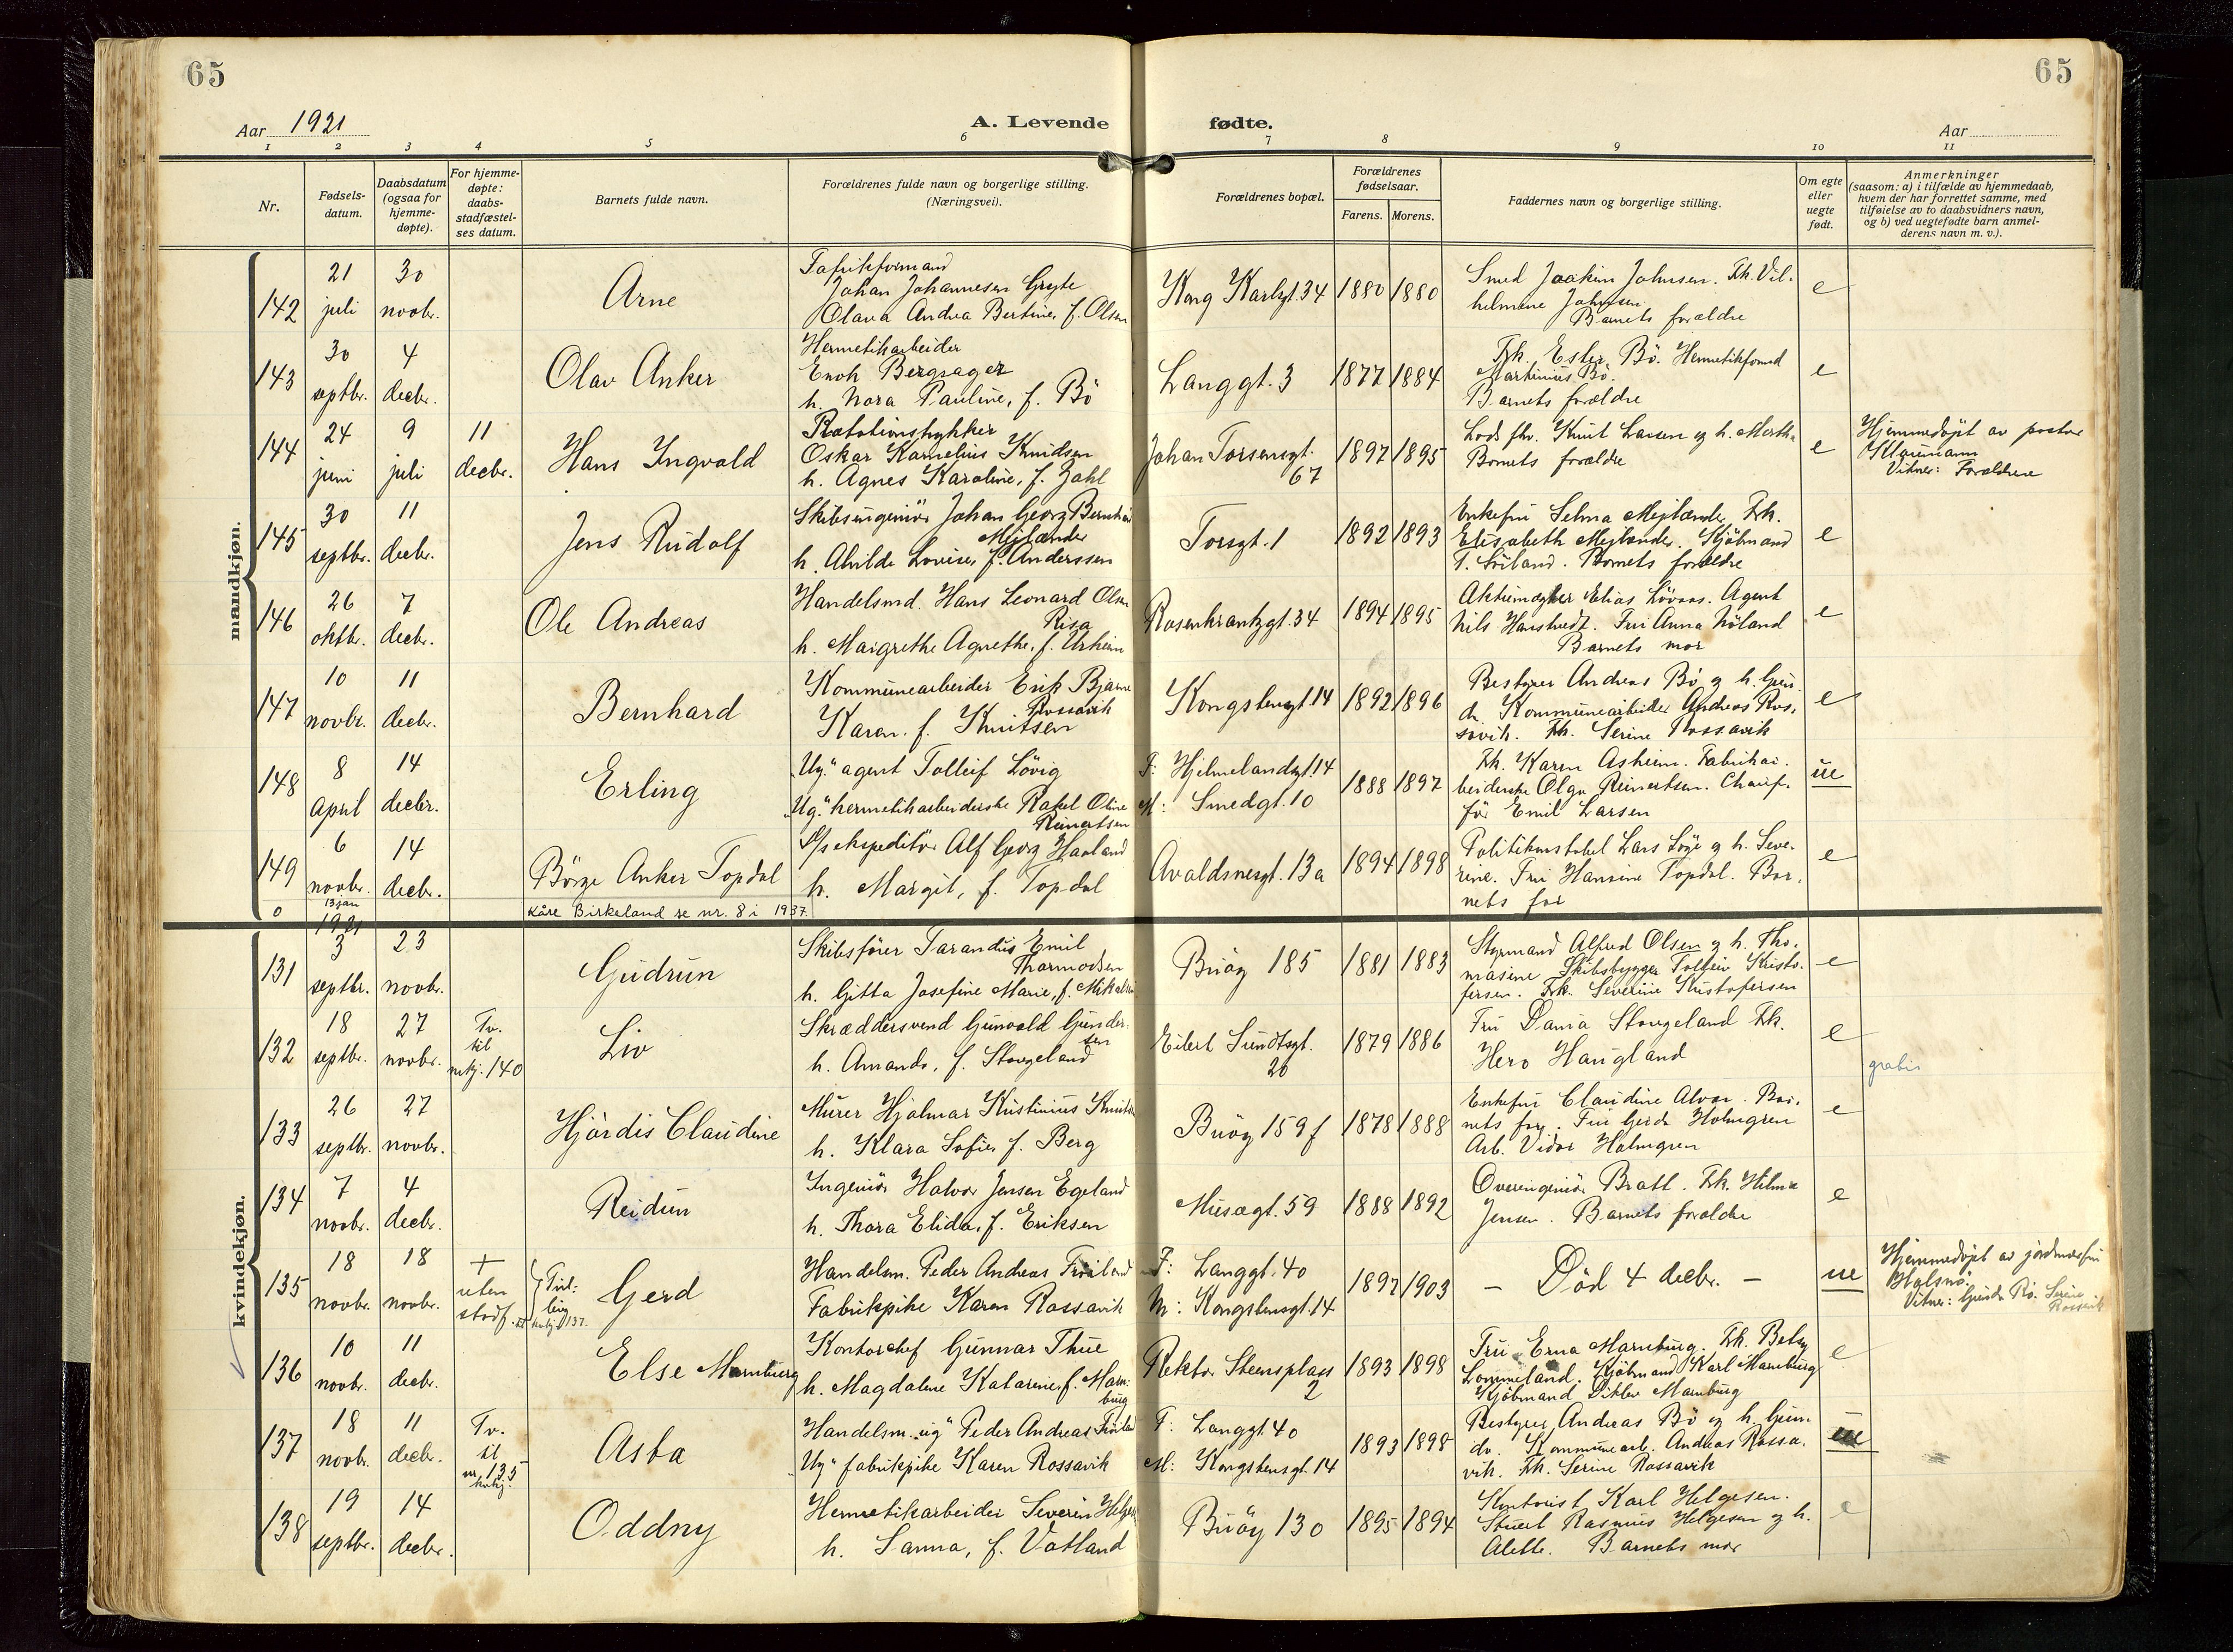 65
65
Aar 1921
A. Levende fødte.
Aar
1 2 3 4 5 6 7 8 9 10 11
Nr.
Fødsels-
datum.
Daabsdatum
(ogsaa for
hjemme-
døpte).
For hjemme-
døpte:
daabs-
stadfæstel-
ses datum.
Barnets fulde navn.
Forældrenes fulde navn og borgerlige stilling.
(Næringsvei).
Forældrenes bopæl.
Forældrenes
fødselsaar.
Farens. Morens.
Faddernes navn og borgerlige stilling.
Om egte
eller
uegte
født.
Anmerkninger
(saasom: a) i tilfælde av hjemmedaab,
hvem der har forrettet samme, med
tilføielse av to daabsvidners navn,
og b) ved uegtefødte barn anmel-
derens navn m. v.).
mandkjøn.
142
21
juli
30
novbr.
Arne
Fabrikformand
Johan Johannesen Gryte
Olava Andrea Bertine, f. Olsen
Kong Karlsgt. 34
1880 1880
Smed Joakim Johnsen. Frk. Vil-
helmine Johnsen
Barnets forældre
e
143
30
septbr.
4
decbr.
Olav Anker
Hermetikarbeider
Enok Bergsager
h. Nora Pauline, f. Bö
Langgt. 3
1877 1884
Frk. Ester Bö. Hermetikformd
Martinius Bö.
Barnets forældre
e
144
24
juni
9
juli
11
decbr.
Hans Ingvald
Rotationstrykker
Oskar Kornelius Knudsen
h. Agnes Karoline, f. Zahl
Johan Torsensgt.
67
1897 1895
Knut Larsen og h. Marth
Barnets forældre
e
Hjemmedöpt av pastor
Vitner: Forældrene
145
30
septbr.
11
decbr.
Jens Rudolf
Skibsingeniör Johan Georg Bernhard
Mejlænder
h. Alvilde Lovise, f. Anderssen
Torsgt. 1
1892 1893
Enkefru Selma Mejlænder, Frk.
Elisabeth Mejlænder. Kjöbmand
Barnets forældre
e
146
26
oktbr.
7
decbr.
Ole Andreas
Handelsmd. Hans Leonard Olsen
Risa
h. Margrethe Agnethe, f. Urheim
Rosenkrantzgt. 34
1894 1895
Aktiemægler Elias Lövaas. Agent
Nils Hanstvedt. Fru Anna Nöland
Barnets mor
e
147
10
novbr.
11
decbr.
Bernhard
Kommunearbeider Erik Bjarne
Rossavik
Karen. f. Knutsen
Kongsbergt. 14
1892 1896
Bestyrer Andreas Bö og h. Gun-
da. Kommunearbeider Andreas Ros-
savik. Frk. Serine Rossavik
e
148
8
April
14
decbr.
Erling
"Ug." agent Tolleif Lövig
"Ug." hermetikarbeiderske Rakel Oline
Reinertsen
F: Hjelmelandsgt. 14
M: Smedgt. 10
1888 1897
Frk. Karen Asheim. Fabrikar-
beiderske Olga Reinertsen. Chauf-
för Emil Larsen
ue
149
6
novbr.
14
decbr.
Börge Anker Topdal
S/s ekspeditör Alf Georg Haaland
h. Margit, f. Topdal
Avaldsnesgt. 13a
1894 1898
Politikonstabel Lars Söge og h. Seve-
rine. Fru Hansine Topdal. Bar-
nets far
e
0
13 jan
1921
Kåre Birkeland se nr. 8 i 1937.
kvindekjøn.
131
3
septbr.
23
novbr.
Gudrun
Skibsförer Tarandus Emil
Thormodsen
h. Gitta Josefine Marie, f. Mikalsen
Buöy 185
1881 1883
Styrmand Alfred Olsen og h. Tho-
masine Skibsbygger Tolleiv Kristo-
fersen. Frk. Severine Kristofersen
e
132
18
septbr.
27
novbr.
Tv.
til
mkj. 140
Liv
Skræddersvend Gunvald Gunder-
sen
h. Amanda, f. Stangeland
Eilert Sundtsgt.
20
1879 1886
Fru Dania Stangeland Frk.
Hero Haugland
e
gratis
133
26
septbr.
27
novbr.
Hjördis Claudine
Murer Hjalmar Kristinius Knuts
h. Klara Sofie, f. Berg
Buöy 159f
1878 1888
Enkefru Claudine Alvær. Bar-
nets far. Fru Gerda Holmgren
Arb. Vidar Holmgren
e
134
7
novbr.
4
decbr.
Reidun
Ingeniör Halvor Jensen Egeland
h. Thora Elida, f. Eriksen
Musægt. 59
1888 1892
Overingeniör Bratt. Frk. Helma
Jensen. Barnets forældre
e
135
18
novbr.
18
novbr.
+
uten
stadf.
Tvil-
ling
kvkj. 137.
Gerd
Handelsm. Peder Andreas Fröiland
Fabrikpike Karen Rossavik
F: Langgt. 40
M: Kongsbergt. 14
1897 1903
- Död 4 decbr. -
ue
Hjemmedöpt av jordmorfru
Halsnö.
Vitner: Gunda Bö. Serine
Rossavik
136
10
novbr.
11
decbr.
Else Marnburg
Kontorchef Gunnar Thue
h. Magdalene Katarine, f. Marn-
burg
Rektor Steensplass
2
1893 1898
Fru Erna Marnburg. Frk. Betsy
Lommeland. Kjöbmand Karl Marnburg
Kjöbmand Ditlev Marnburg
e
137
18
novbr.
11
decbr.
Tv.
til
nr. 135
kvkj.
Asta
Handelsm. "ug" Peder Andreas Fröiland
"Ug" fabrikpike Karen Rossavik
F: Langgt. 40
M: Kongsbergt. 14
1893 1898
Bestyrer Andreas Bö og h. Gun-
da. Kommunearb. Andreas Rossa-
vik. Frk. Serine Rossavik
ue
138
19
septbr.
14
decbr.
Oddny
Hermetikarbeider Severin Helgesen
h. Sanna, f. Vatland
Buöy 130
1895 1894
Kontorist Karl Helgesen.
Stuert Rasmus Helgesen og h.
Alette. Barnets mor
e